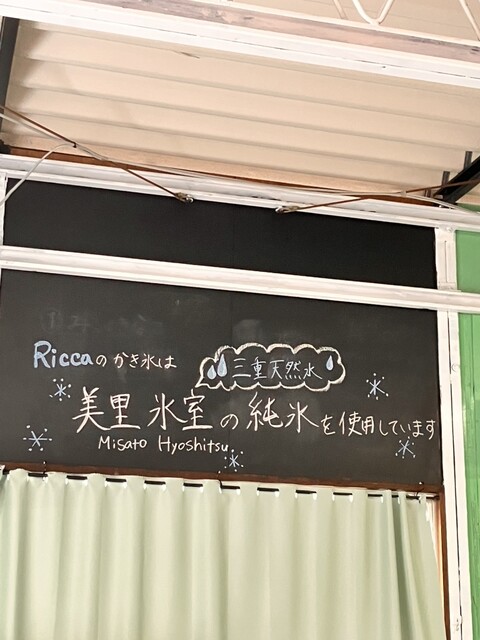 Riccaのかき氷は
三重天然水
美里氷室の純氷を使用しています
Misato Hyoshitsu